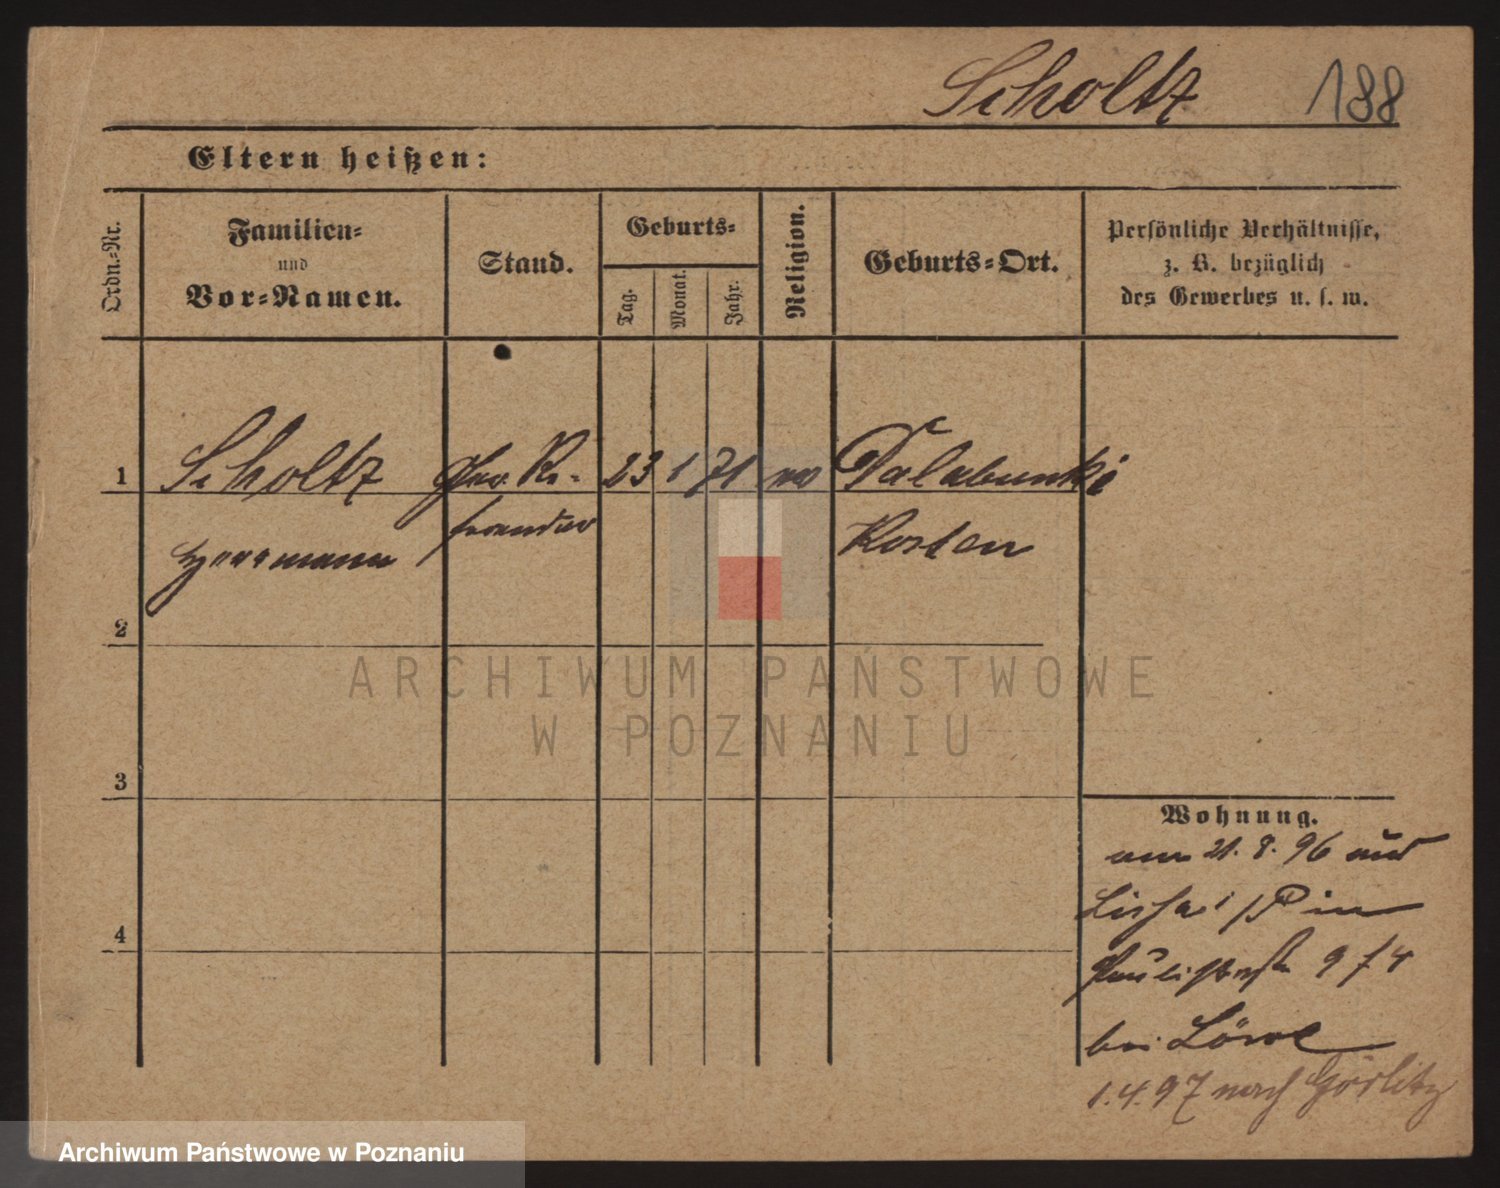 Scholtz 188
Eltern heißen:
Ordn.-Nr.
Familien-
und
Vor-Namen.
Stand.
Geburts-
Tag.
Monat.
Jahr.
Religion.
Geburts-Ort.
Persönliche Verhältnisse,
z. B. bezüglich
des Gewerbes u. s. w.
1 Scholtz Re- 23 1 71
ferendar
Herrmann
Kosten
2
3
4
ARCHIWUM PAŃSTWOWE
W POZNANIU
Wohnung.
21. 8. 96 aus
Lissa i/P in
Paulikirchstr 9
bei Löwe
1.4.97 nach Görlitz
Archiwum Państwowe w Poznaniu